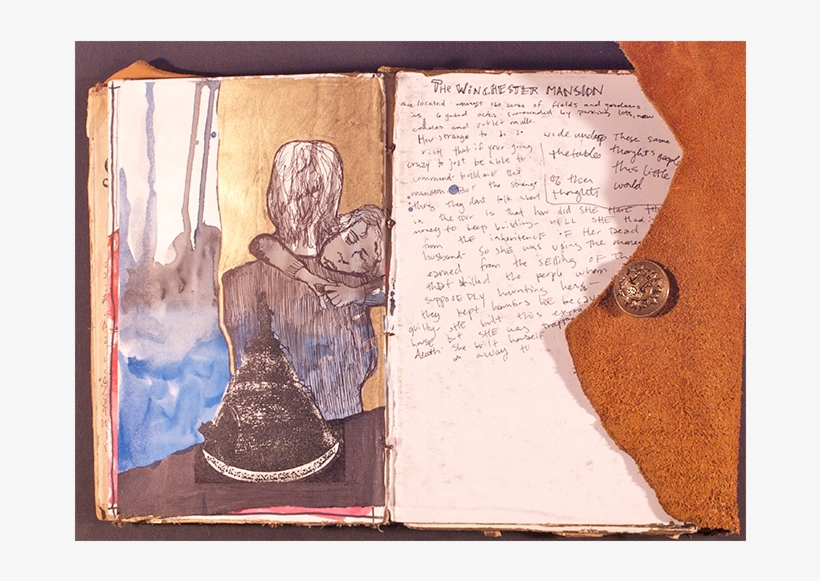 THE WINCHESTER MANSION
are located amongst 160 acres of fields and gardens
is 6 grand acres surrounded by parking lots, new
condos and outlet malls.
How strange to be so
rich that if your going
crazy to just be able to
command build me that
mansion the strange
thing they dont talk about
in the tour is that how did SHE HAVE THE
money to keep building. WELL SHE HAD
from THE inheritence OF Her Dead
husband. So she was using the money
earned from the selling of
that killed the people whom
supposedly haunting her -
they kept haunting
guilty she built this
house but SHE was
death she built herself
as a way to
wide under
the tables
of thier
thoughts
These same
thoughts people
this little
world